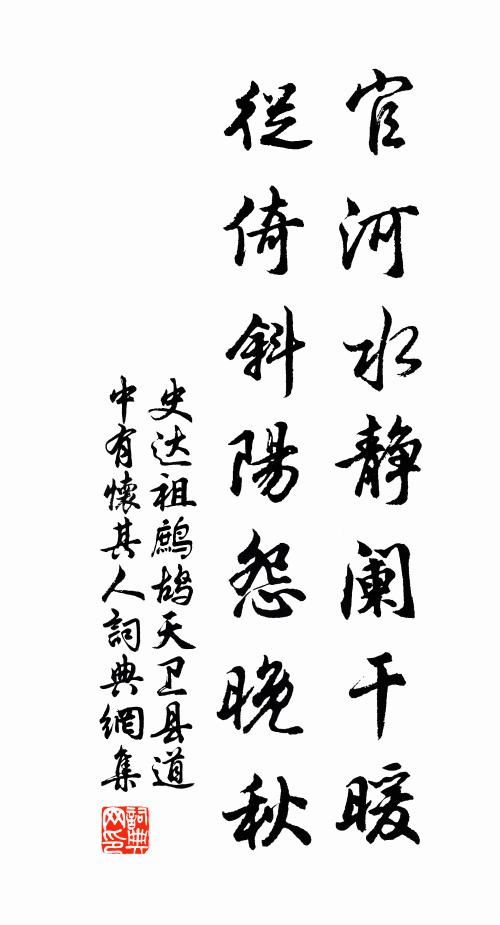 官河水静阑干暖
従倚斜陽怨晚秋
史达祖鹧鸪天卫县道
中有懷其人詞典網集
詞典
网印